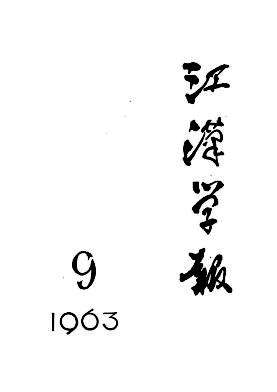 江漢学報
9
1963